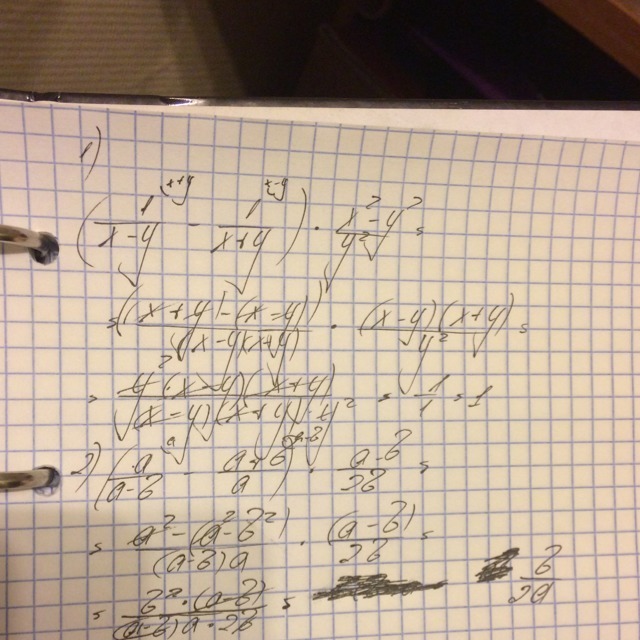 1)
(1/(x-y) ^(x+y) - 1/(x+y) ^(x-y)) · (x²-y²)/y² =
= ((x+y)-(x-y))/((x-y)(x+y)) · ((x-y)(x+y))/y² =
= (y²(x-y)(x+y))/((x-y)(x+y)·y²) = 1/1 = 1
2) (a/(a-b) ^(a) - (a+b)/a ^(a-b)) · (a-b)/2b =
= (a²-(a²-b²))/((a-b)a) · (a-b)/2b =
= (b²·(a-b))/((a-b)a·2b) = b/2a